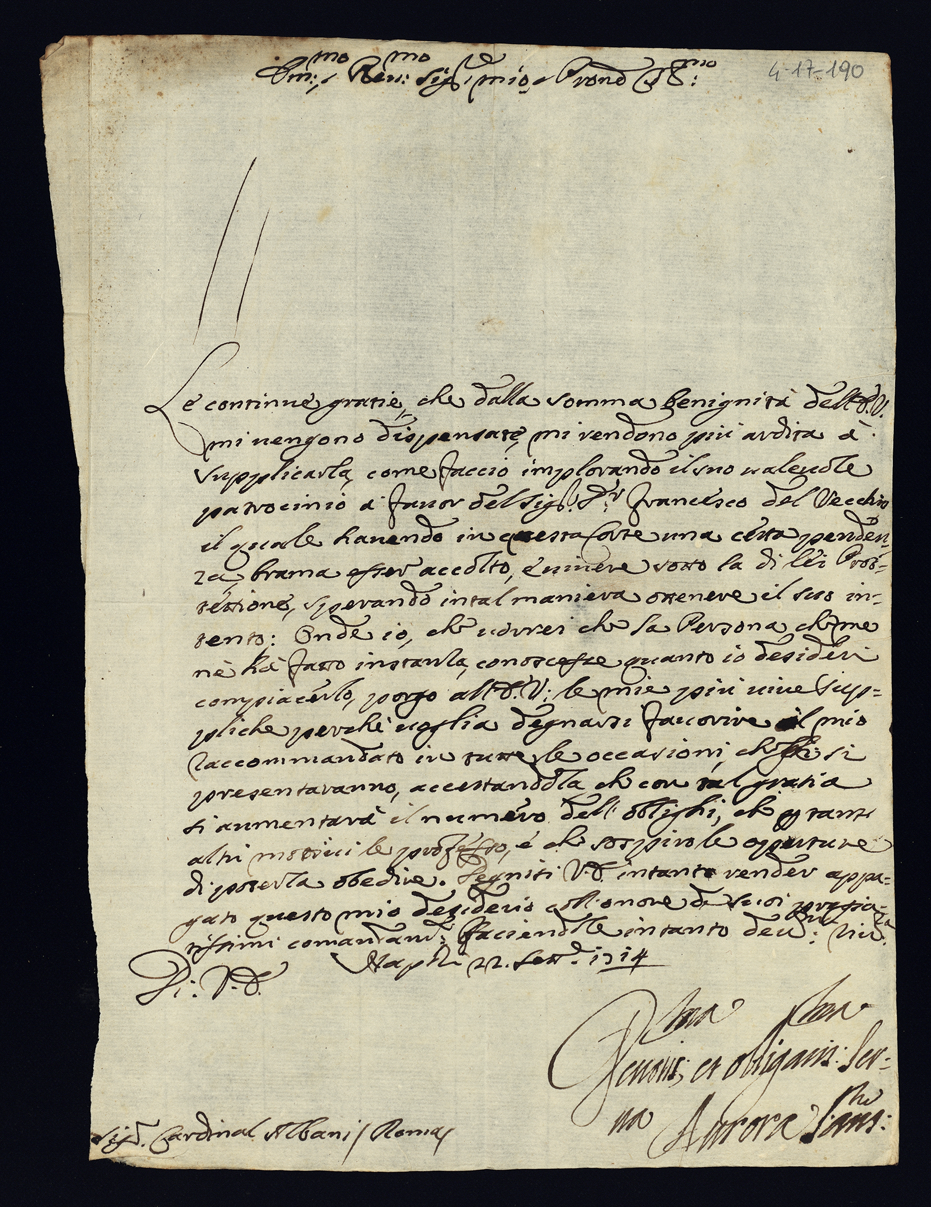 4-17-190
Em:mo, e Reu:mo Sig:r mio, e Prone Col:mo
Le continue gratie, che dalla somma benignità dell'E.V.
mi uengono dispensate, mi rendono più ardita à
supplicarla, come faccio implorando il suo ualeuole
patrocinio à fauor del Sig:r D:r Francesco del Vecchio
il quale hauendo in questa Corte una certa penden-
za, brama esser accolto, e uiuere sotto la di lei Prot-
tettione, sperando in tal maniera ottenere il suo in-
tento: Onde io, che uorrei che la Persona che me
nè hà fatto instanza, conoscesse quanto io desideri
compiacerlo, porgo all'E.V: le mie più uiue sup-
pliche perché uoglia degnarsi fauorire il mio
raccommandato in tutte le occasioni che gli si
presentaranno, accertandola che con tal gratia
si aumentarà il numero dell'oblighi, che per tant'
altri motiui le professo, e che sospiro le aperture
di poterla obedire. Degnisi V.E. intanto render appa-
gato questo mio desiderio coll'onore de suoi pregia-
tissimi comandam:ti facendole intanto deu:ma riu:za
Napoli 22. Sett:e 1714
Di: V.E.
Deuotis:ma et obligatis:ma Ser-
ua Aurora Sans:
Sig:r Cardinal Albani / Roma /